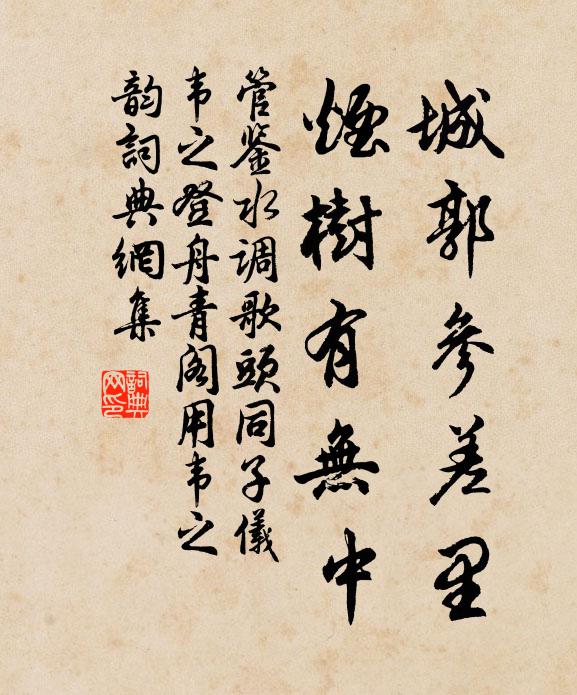 城郭参差里
煙樹有無中
管鉴水调歌頭同子儀
韦之登舟青阁用韦之
韵詞典網集
詞典
网印